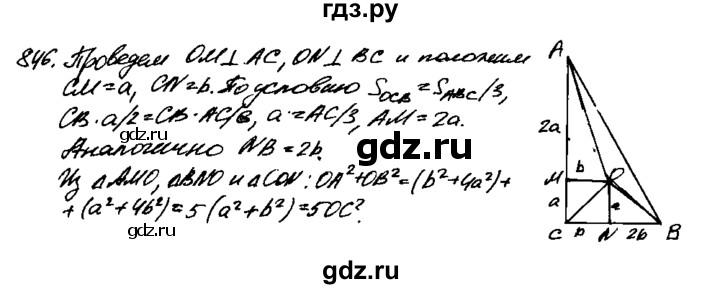 гдз.ру
846. Проведем OM⊥AC, ON⊥BC и положим
CM=a, CN=b. По условию S_OCB=S_ABC/3,
CB·a/2=CB·AC/6, a=AC/3, AM=2a.
Аналогично NB=2b.
Из △AMO, △BNO и △CON: OA²+OB²=(b²+4a²)+
+(a²+4b²)=5(a²+b²)=5OC².
A
2a
M
b
O
a
a
C
b
N
2b
B
gdz.ru
gdz.ru